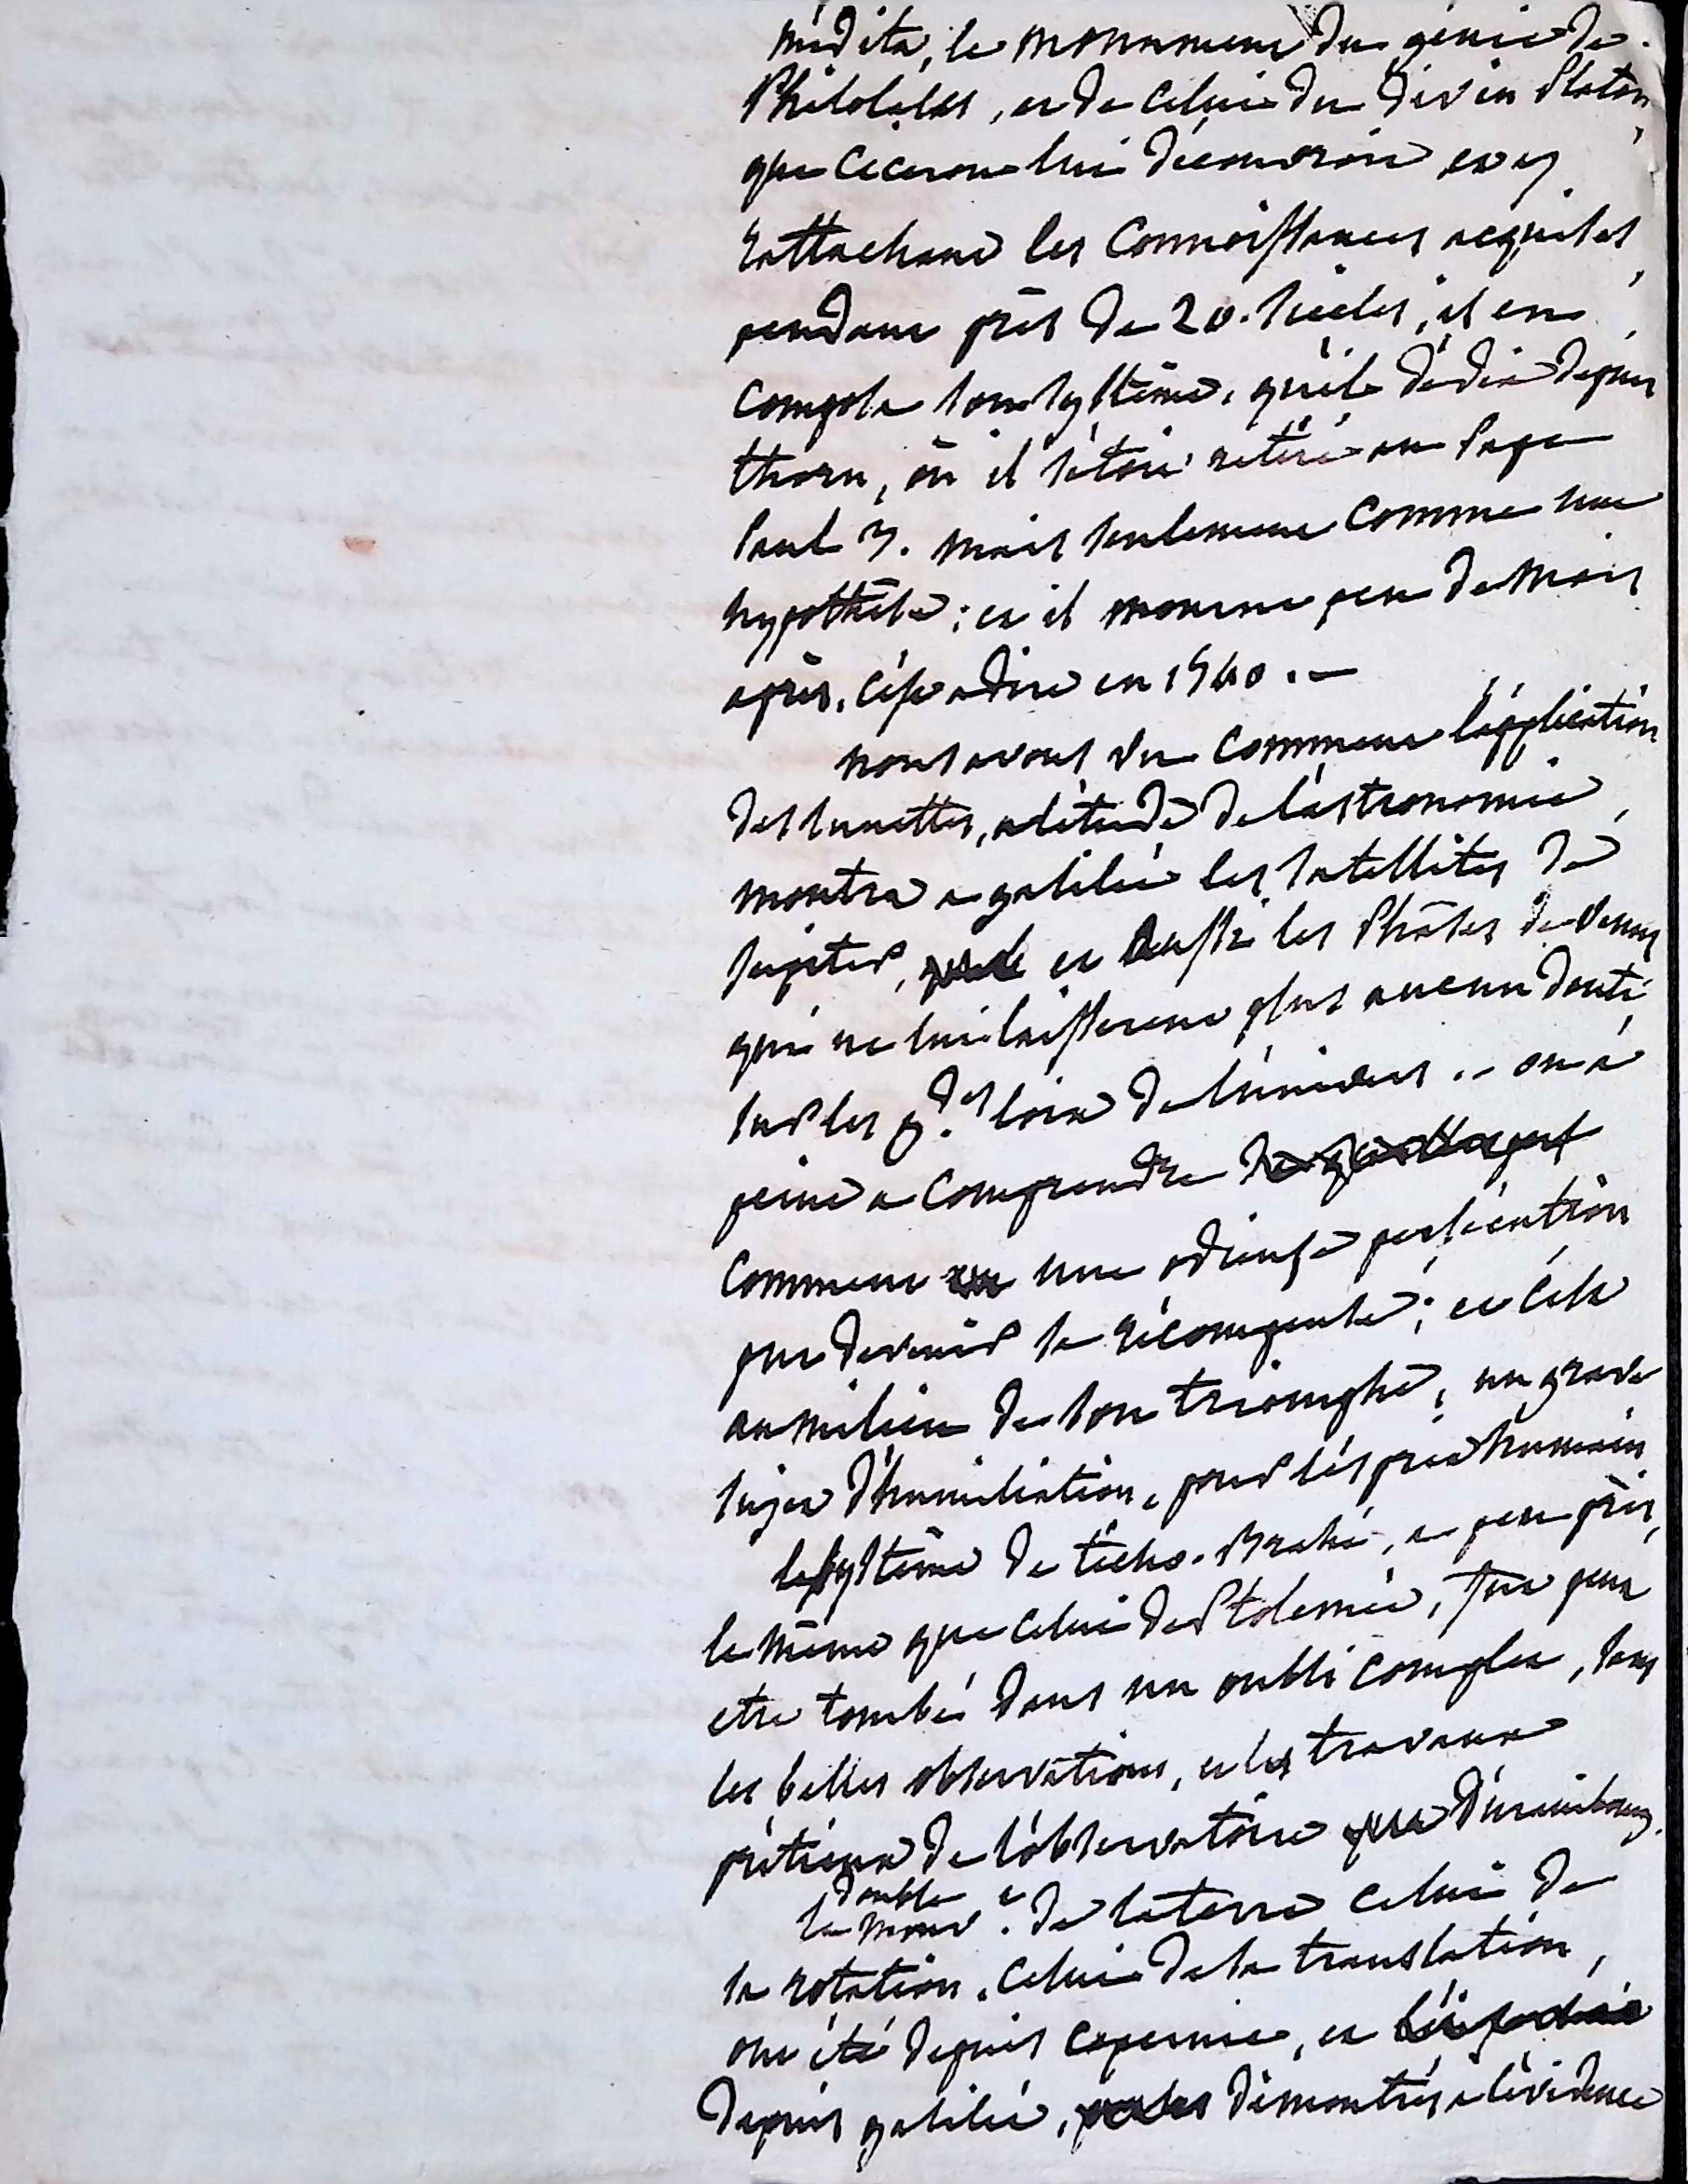 médita, le monument du génie de
Philolaüs, et de celui du divin Platon
que Ciceron lui découvroit, et y
rattachant les Connoissances acquises
pendant près de 20. siecles, il en
composa son système, qu'il dédia depuis
thorn, où il s'étoit retiré au Pape
Paul 3. mais seulement Comme une
hypothèse ; et il mourut peu de mois
après, c'est adire en 1540. —
nous avons vu comment l'application
des lunettes, a l'étude de l'astronomie,
montra a galilée les satellites de
Jupiter, et aussi les Phâses de Venus
qui ne lui laisserent plus aucun doute
sur les g.des loix de l'univers .- on a
peine a comprendre
comment une odieuse persécution
put devenir sa récompense ; et c'est
au milieu de son triomphe, un grave
sujet d'humiliation, pour l'esprit humain
le système de ticho-Brahé, a peu près,
le même que celui de Ptolemée, seroit peut
etre tombé dans un oubli complet, sans
les belles observations, et les travaux
prétieux de l'observatoire d'uranibourg.
double
le mouv.t de la terre celui de
la rotation, celui de la translation,
ont été depuis Copernic, et
depuis galilée, démontrés a l'évidence